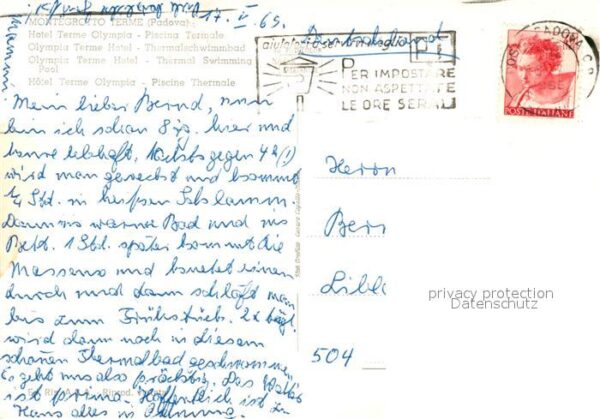 17. V 65.
MONTEGROTTO TERME (Padova)
Hotel Terme Olympia - Piscina Termale
Olympia Terme Hotel - Thermalschwimmbad
Olympia Terme Hotel - Thermal Swimming Pool
Hôtel Terme Olympia - Piscine Thermale
Mein lieber Bernd, nun
bin ich schon 8 Tg. hier und
Nachts gegen 4 h (!)
wird man geweckt und kommt
1/4 Std. in heissen Schlamm.
Dann ins warme Bad und ins
Bett. 1 Std. später kommt die
Masseuse und knetet einen
durch und dann schläft man
bis zum Frühstück. 2x tägl.
wird dann noch in diesem
schönen Thermalbad geschwommen.
Es geht uns also prächtig. Das Wetter
ist prima. Hoffentlich ist zu
Haus alles in Ordnung.
Mammi
PER IMPOSTARE
NON ASPETTATE
LE ORE SERALI
POSTE ITALIANE
Herrn
Bern
Libl
504
privacy protection
Datenschutz